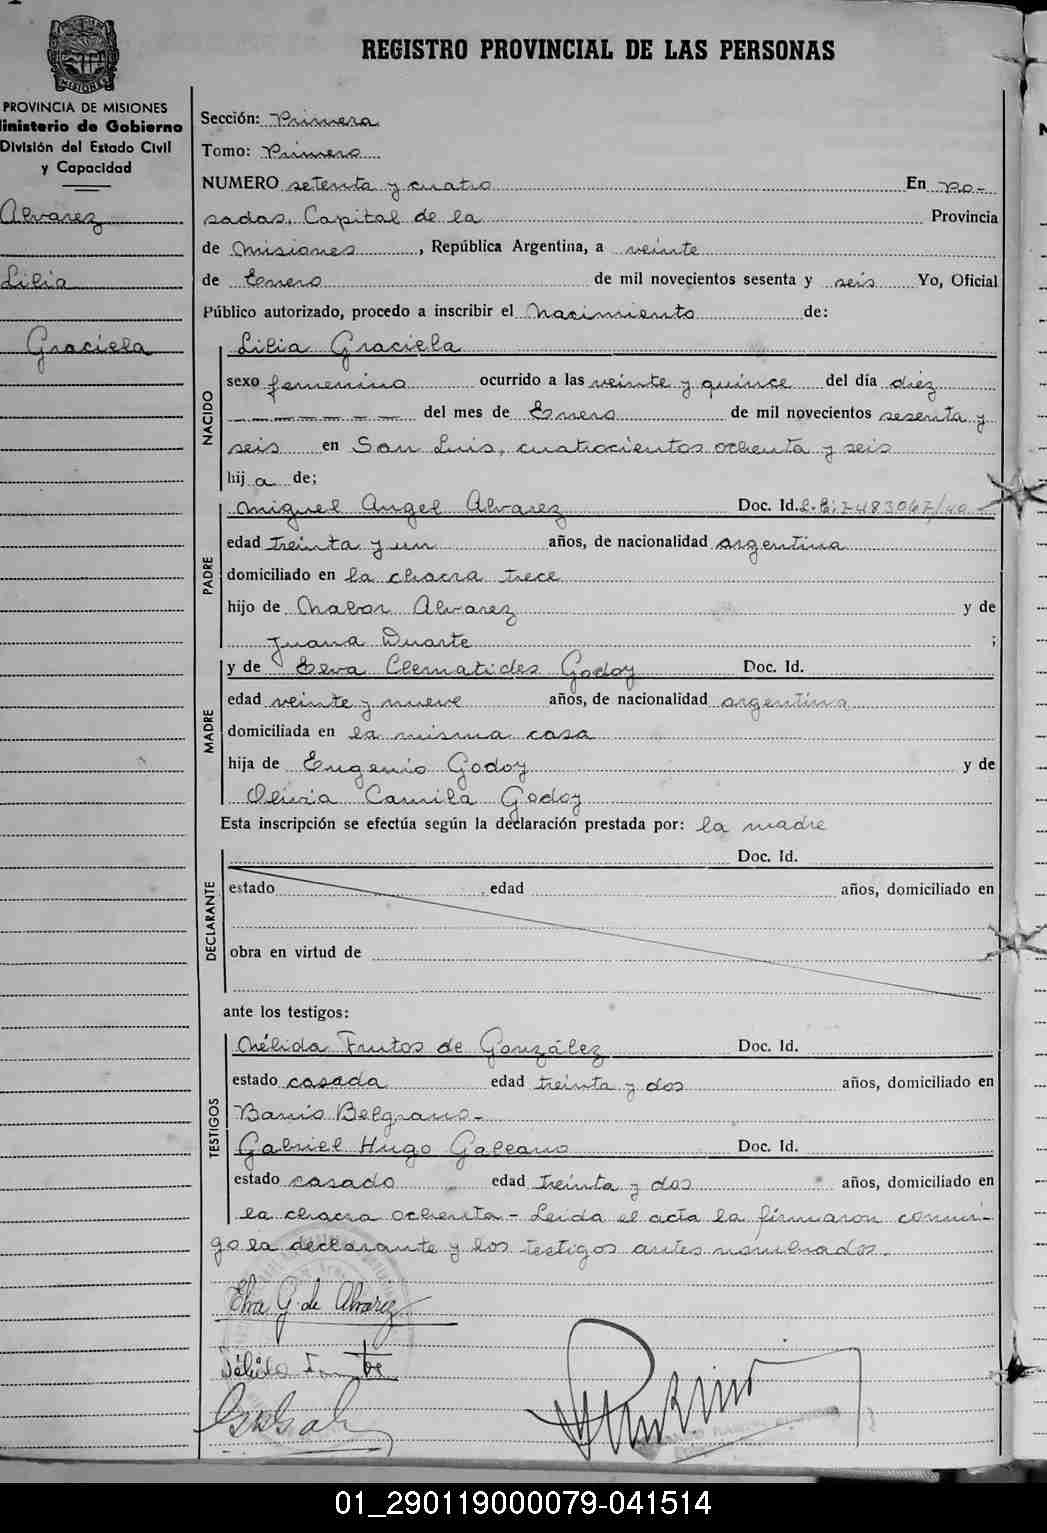 REGISTRO PROVINCIAL DE LAS PERSONAS
MISIONES
PROVINCIA DE MISIONES
Ministerio de Gobierno
División del Estado Civil
y Capacidad
Alvarez
Lilia
Graciela
Sección: Primera
Tomo: Primero
NUMERO setenta y cuatro En Po-
sadas, Capital de la Provincia
de Misiones, República Argentina, a veinte
de Enero de mil novecientos sesenta y seis Yo, Oficial
Público autorizado, procedo a inscribir el Nacimiento de:
NACIDO
Lilia Graciela
sexo femenino ocurrido a las veinte y quince del día diez
del mes de Enero de mil novecientos sesenta y
seis en San Luis, cuatrocientos ochenta y seis
hija de;
PADRE
Miguel Angel Alvarez Doc. Id.
edad treinta y un años, de nacionalidad argentina
domiciliado en la chacra trece
hijo de Nabor Alvarez y de
Juana Duarte ;
MADRE
y de Elva Clematides Godoy Doc. Id.
edad veinte y nueve años, de nacionalidad argentina
domiciliada en la misma casa
hija de Eugenio Godoy y de
Olivia Camila Godoy
Esta inscripción se efectúa según la declaración prestada por: la madre
DECLARANTE
Doc. Id.
estado edad años, domiciliado en
obra en virtud de
ante los testigos:
TESTIGOS
Nélida Frutos de González Doc. Id.
estado casada edad treinta y dos años, domiciliado en
Barrio Belgrano-
Gabriel Hugo Galeano Doc. Id.
estado casado edad treinta y dos años, domiciliado en
la chacra ochenta - Leida el acta la firmaron conmi-
go la declarante y los testigos antes nombrados.
Elva G. de Alvarez
01_290119000079-041514